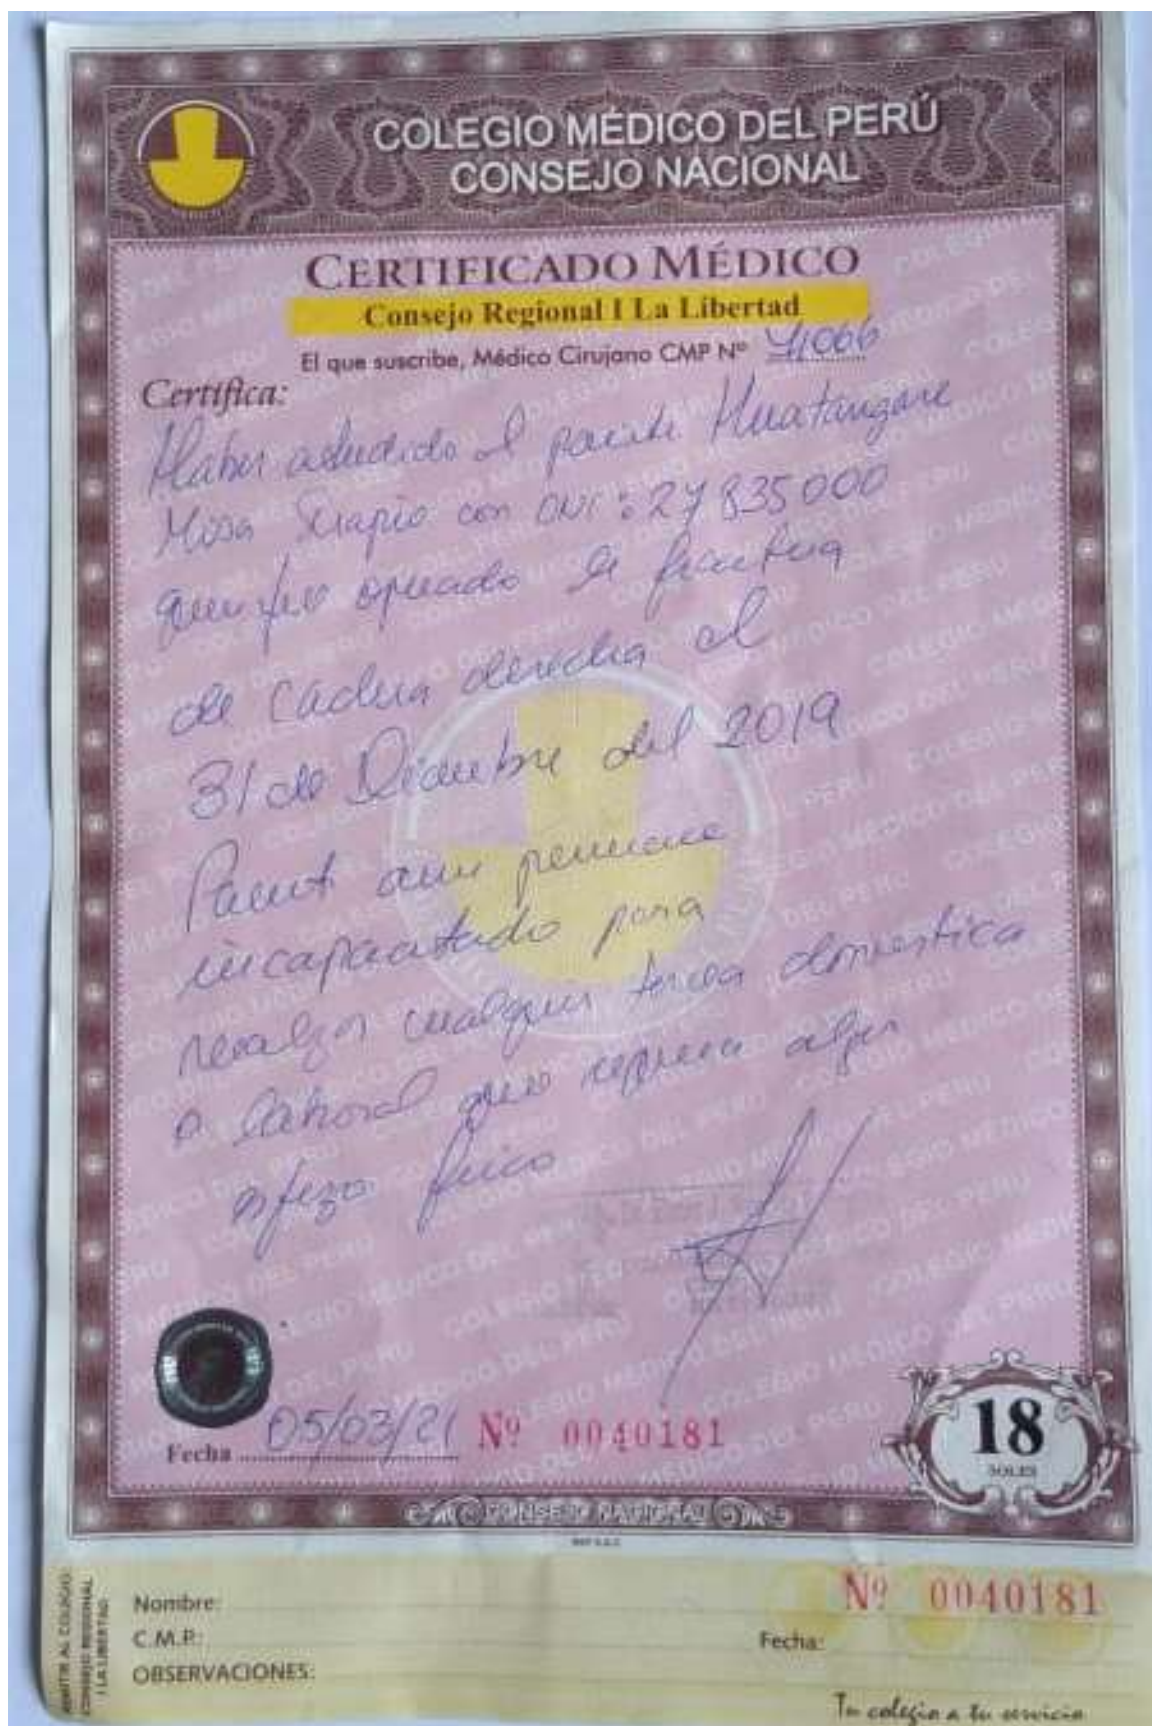 COLEGIO MÉDICO DEL PERÚ
CONSEJO NACIONAL
CERTIFICADO MÉDICO
Consejo Regional I La Libertad
El que suscribe, Médico Cirujano CMP Nº 41066
Certifica:
Haber atendido al paciente Huatangare
Misa Serapio con DNI: 27835000
quien fue operado de fractura
de cadera derecha el
31 de Diciembre del 2019
Paciente aun permanece
incapacitado para
realizar cualquier tarea domestica
o laboral que requiera algun
esfuerzo fisico
Fecha 05/03/21 Nº 0040181
18
SOLES
CONSEJO NACIONAL
REMITIR AL COLEGIO
CONSEJO REGIONAL
I LA LIBERTAD
Nº 0040181
Nombre:
C.M.P.:
Fecha:
OBSERVACIONES:
Tu colegio a tu servicio